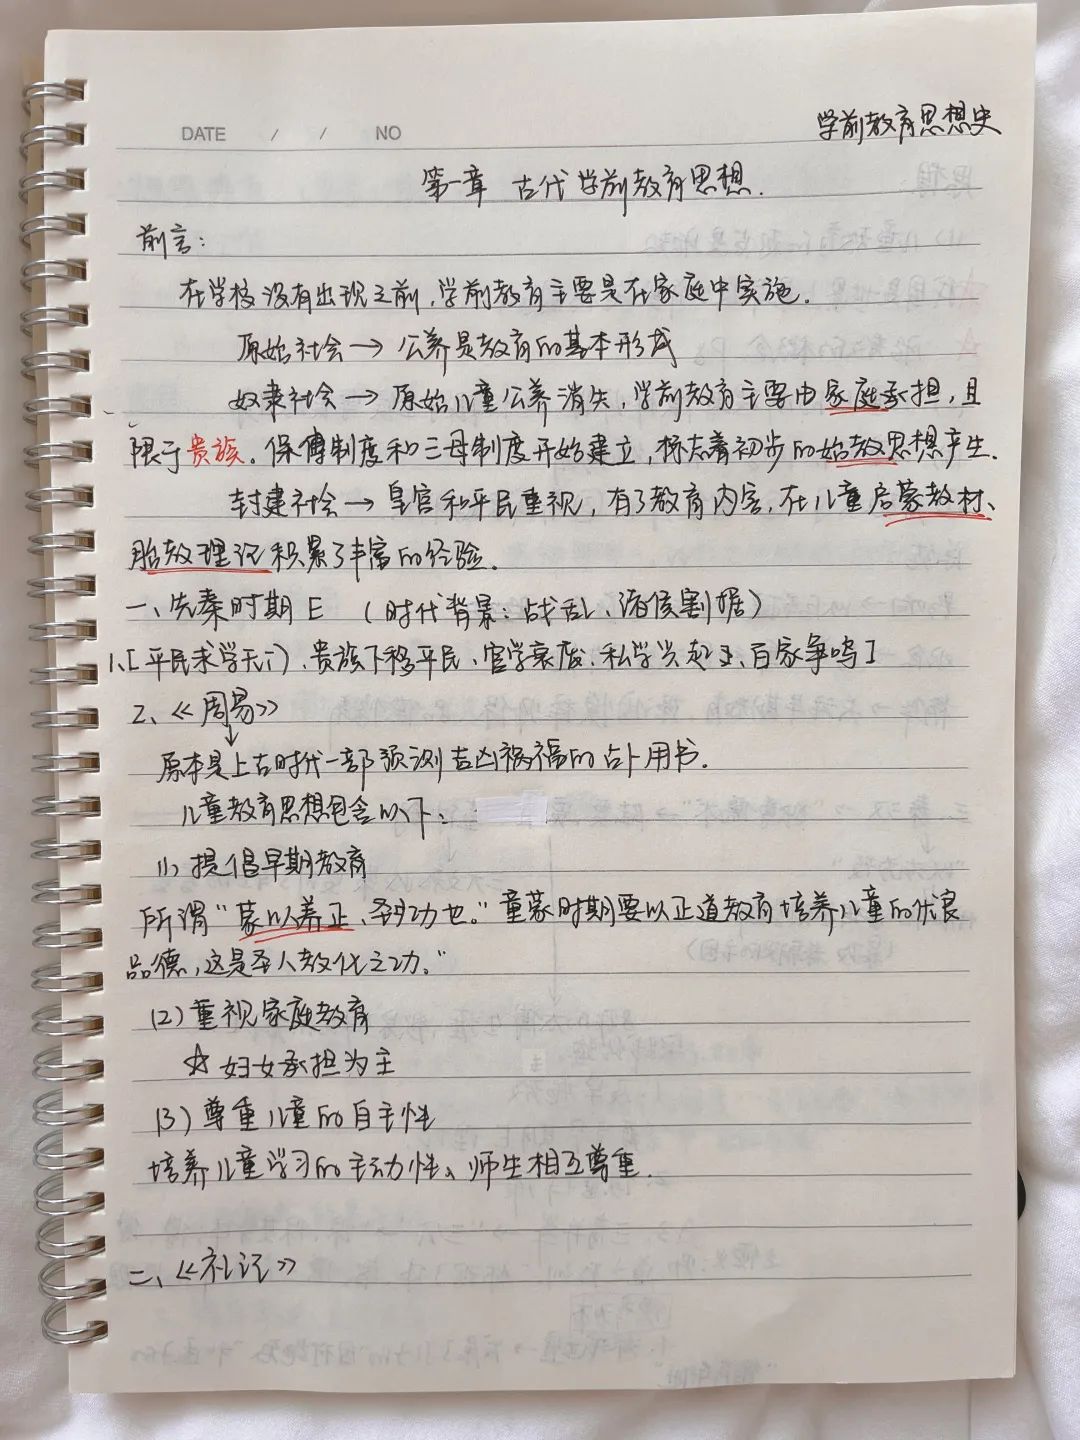 DATE / / NO
学前教育思想史
第一章 古代学前教育思想.
前言:
在学校没有出现之前,学前教育主要是在家庭中实施.
原始社会→公养是教育的基本形式
奴隶社会→原始儿童公养消失,学前教育主要由家庭承担,且
限于贵族。保傅制度和三母制度开始建立,标志着初步的始教思想产生.
封建社会→皇宫和平民重视,有了教育内容,在儿童启蒙教材、
胎教理论积累了丰富的经验.
一、先秦时期 E (时代背景:战乱、诸侯割据)
1、[平民求学无门、贵族下移平民、官学衰废、私学兴起、百家争鸣]
2、《周易》
↓
原本是上古时代一部预测吉凶祸福的占卜用书.
儿童教育思想包含以下:
(1) 提倡早期教育
所谓“蒙以养正,圣功也。”童蒙时期要以正道教育培养儿童的优良
品德,这是圣人教化之功。”
(2) 重视家庭教育
☆ 妇女承担为主
(3) 尊重儿童的自主性
培养儿童学习的主动性、师生相互尊重.
二、《礼记》